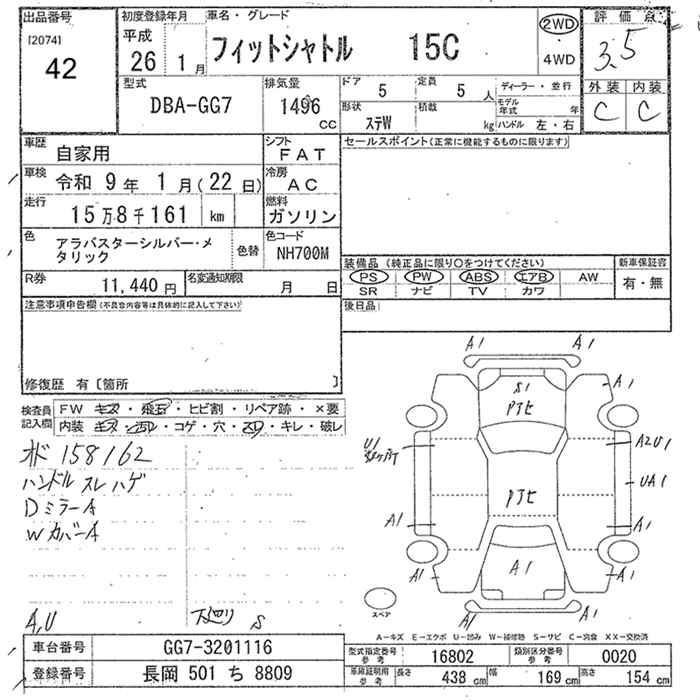 出品番号
[2074]
42
初度登録年月
平成
26 1月
車名・グレード
フィットシャトル 15C
2WD
・
4WD
評価点
3.5
外装 内装
C C
型式
DBA-GG7
排気量
1496
CC
ドア 5
定員 5 人
形状 ステW
積載 kg
ディーラー・並行
モデル年式 年
ハンドル 左・右
車歴
自家用
シフト
FAT
車検
令和 9年 1月(22日)
冷房
AC
走行
15万8千161 km
燃料
ガソリン
色
アラバスターシルバー・メ
タリック
色替
色コード
NH700M
R券
11,440 円
名変通知期限
月 日
セールスポイント(正常に機能するものに限ります)
装備品(純正品に限り○をつけてください)
PS PW ABS エアB AW
SR ナビ TV カワ
新車保証容
有・無
後日品
注意事項申告欄(不具合内容等は具体的に記入して下さい)
修復歴 有〔箇所 〕
検査員
記入欄
FW キズ・飛石・ヒビ割・リペア跡・×要
内装 キズ・汚れ・コゲ・穴・スレ・キレ・破レ
オド 158162
ハンドル スレ ハゲ
DミラーA
WカバーA
A,U
下廻り S
A1 A1
S1
A1
PTヒ
U1
A2U1
PTヒ
UA1
A1
A1
A1
A1
A1
A1 A1
スペア
A-キズ E-エクボ U-凹み W-補修跡 S-サビ C-腐食 XX-交換済
車台番号
GG7-3201116
登録番号
長岡 501 ち 8809
型式指定番号
参考
16802
類別区分番号
参考
0020
車庫証明用
参考
長さ 438 cm
幅 169 cm
高さ 154 cm